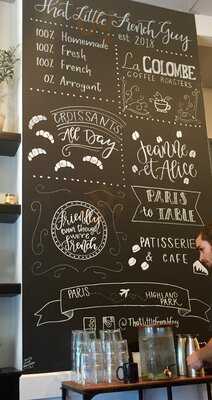 That Little French Guy
est. 2018
100% Homemade
100% Fresh
100% French
0% Arrogant
La COLOMBE
COFFEE ROASTERS
CROISSANTS
All Day
Jeanne
et Alice
PARIS
to TABLE
Friendly
even though
we're
French
PATISSERIE
& CAFE
PARIS
HIGHLAND
PARK
ThatLittleFrenchGuy